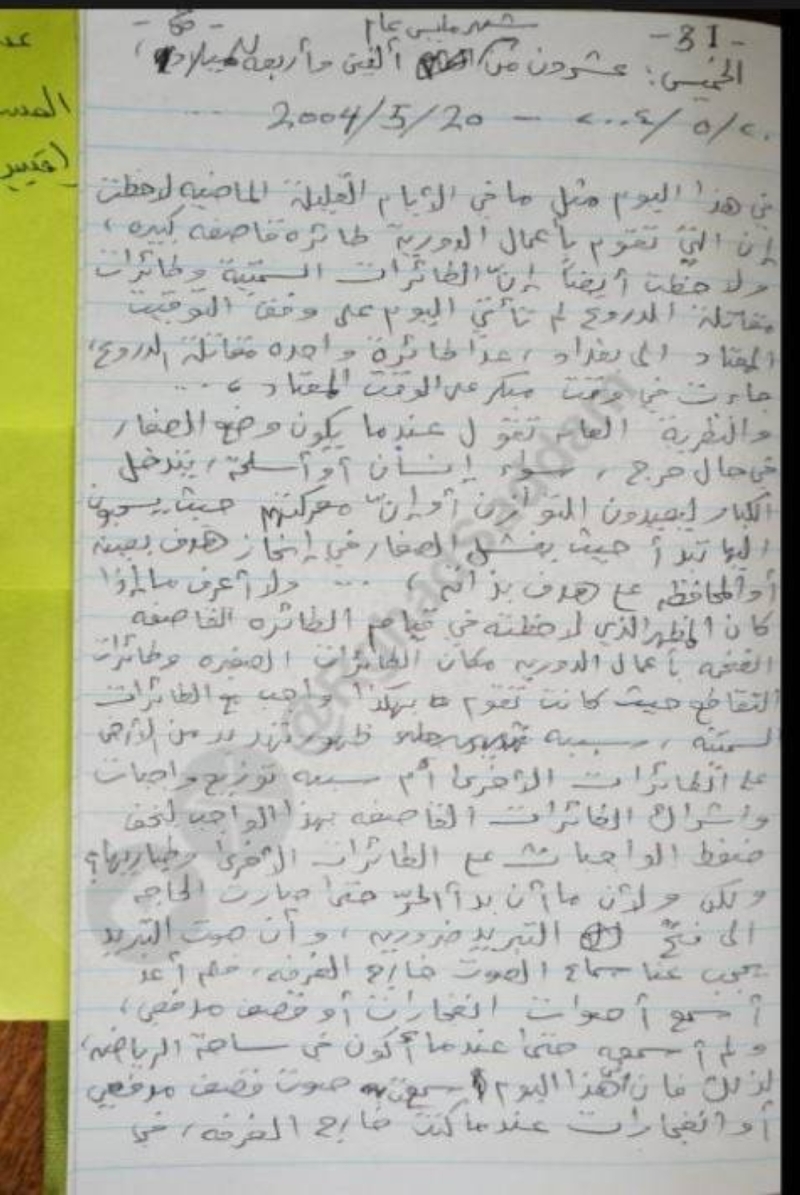 -31-
شهر مايس عام
الخميس: عشرون من ألفين وأربعة للميلاد،
٢٠/٥/٢٠٠٤ - 2004/5/20 ...
في هذا اليوم مثل ما في الأيام القليلة الماضية لاحظت
إن التي تقوم بأعمال الدورية طائره قاصفه كبيره،
ولاحظت أيضاً إن الطائرات السمتية وطائرات
مقاتلة الدروع لم تأتي اليوم على وفق التوقيت
المعتاد الى بغداد، عدا طائرة واحده مقاتلة الدروع،
جاءت في وقت مبكر عن الوقت المعتاد، ...
والنظرية العامه تقول عندما يكون وضع الصغار
في حال حرج، سواء إنسان أو أسلحة، يتدخل
الكبار ليعيدون التوازن أو إن معركتهم حيث يسحبون
اليها تبدأ حيث يفشل الصغار في إنجاز هدف بعينه
أو المحافظه على هدف بذاته، ... ولا أعرف ما إذا
كان المظهر الذي لاحظته في قيام الطائره القاصفه
الضخمه بأعمال الدوريه مكان الطائرات الصغيره وطائرات
التقاطع حيث كانت تقوم بهكذا واجب مع الطائرات
السمتيه، سببه ظهور تهديد من الأرض
على الطائرات الأخرى أم سببه توزيع واجبات
واشراك الطائرات القاصفه بهذا الواجب لتخف
ضغط الواجبات على الطائرات الأخرى وطياريها؟
ولكن ولأن ما أن بدأ الحر حتى صارت الحاجه
الى فتح التبريد ضروريه، وأن صوت التبريد
يحجب عنا سماع الصوت خارج الغرفه، فلم أعد
أسمع أصوات انفجارات أو قصف مدفعي،
ولم أسمعه حتى عندما أكون في ساحة الرياضه،
لذلك فإن هذا اليوم سمعت صوت قصف مدفعي
أو انفجارات عندما كنت خارج الغرفه، في
@RghadSaddam